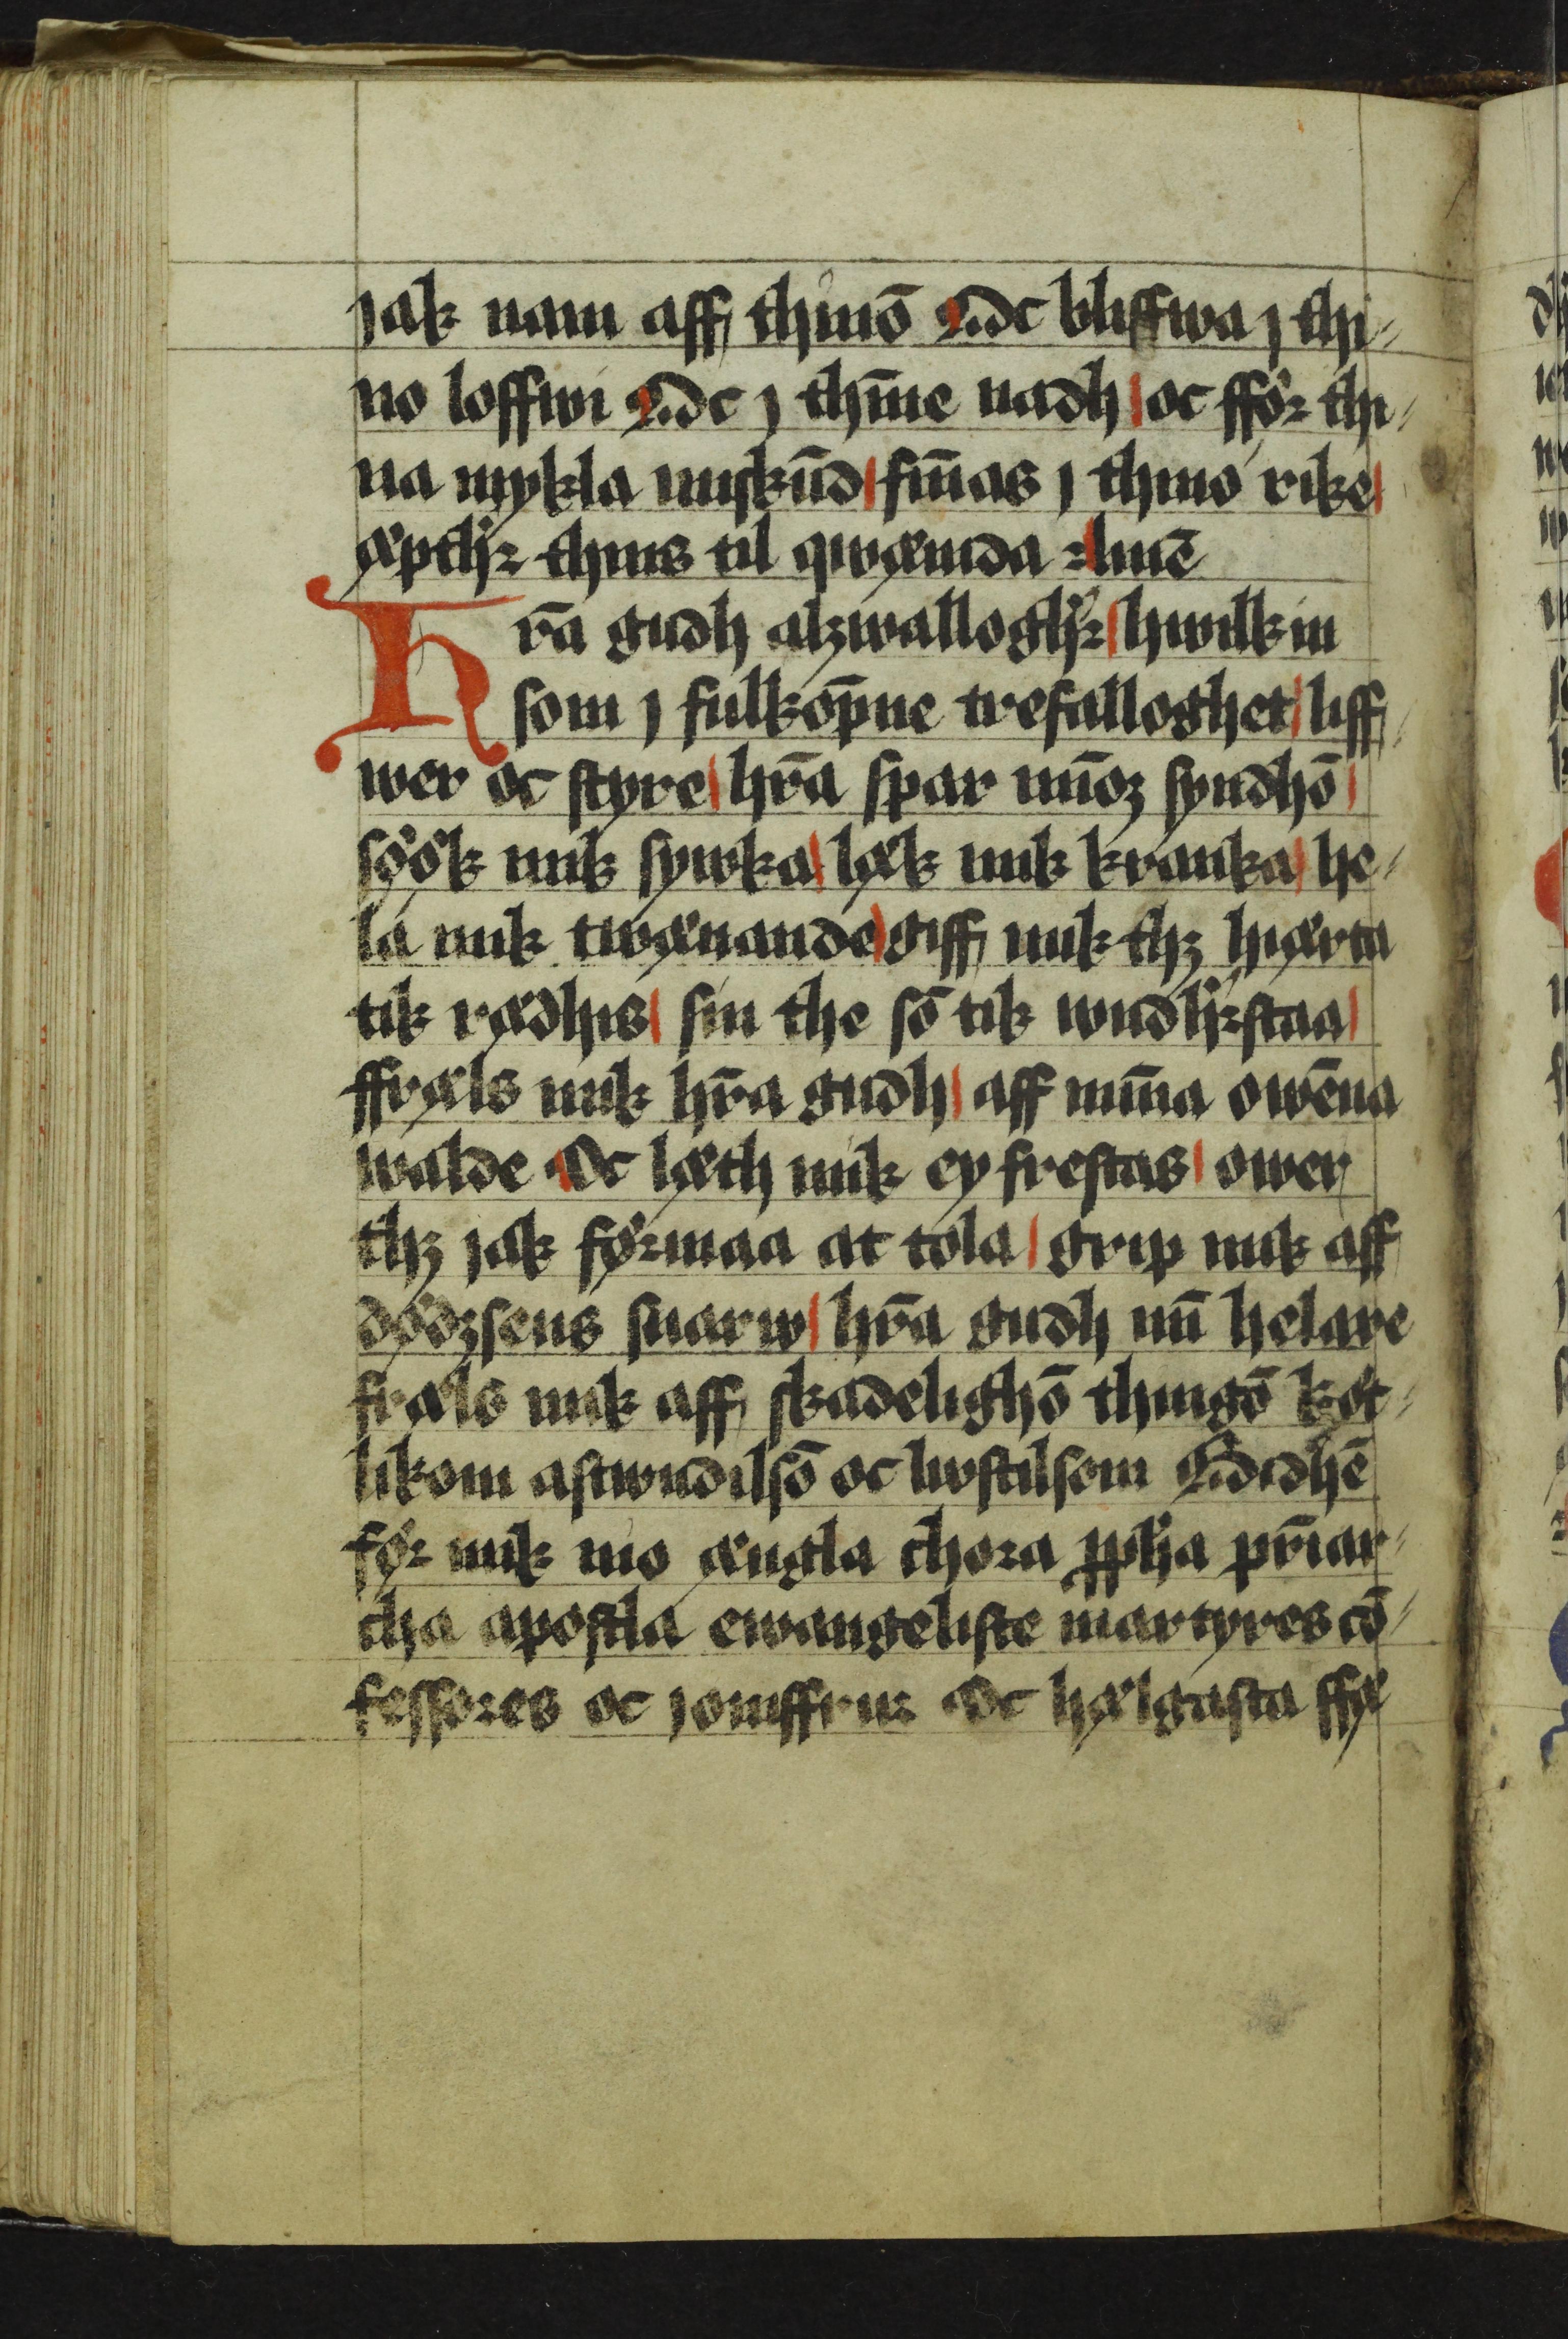 jak nam aff thinō Oc bliffwa j thi-
no loffwi Oc j thīne nadh oc ffør thi-
na mykla miskūd fīnas j thino rike
æpthr̛ thins til qwæmda Amē
Hr̄a gudh alzwalloghr̛ hwilkin
som j fulkōpne trefalloghet liff-
wer oc styre hr̄a spar mīoz syndhō
søøk mik sywka læk mik kranka he-
la mik twænande giff mik thz hiærta
tik rædhis sin the sō tik wndhr̛staa
ffræls mik hr̄a gudh aff mīna owēna
walde Oc læth mik ey frestas ower
thz jak førmaa at tola grip mik aff
dødzsens snarw hr̄a gudh mī helare
fræls mik aff skadelighō thingō køt-
likom astwndilsō oc lwstilsom Bidhē
før mik nio ængla chora ꝓph̄a pr̄iar-
cha apostla ewangeliste martyres cō-
fessores oc jomffrur Oc hælgasta ffæ